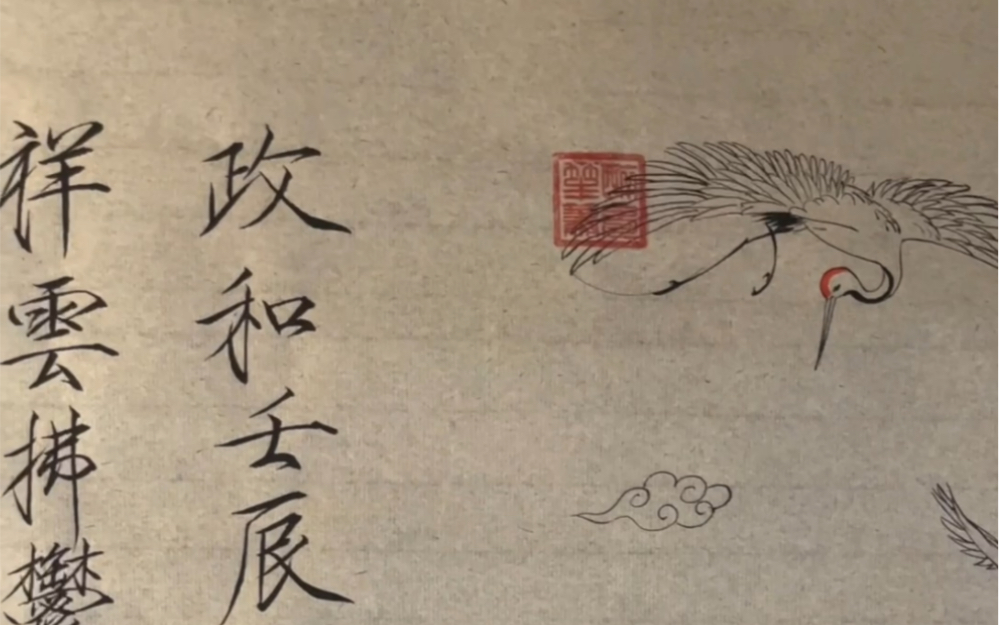 政和壬辰
祥雲拂鬱